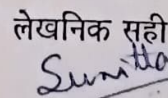 लेखनिक सही
Sunitta